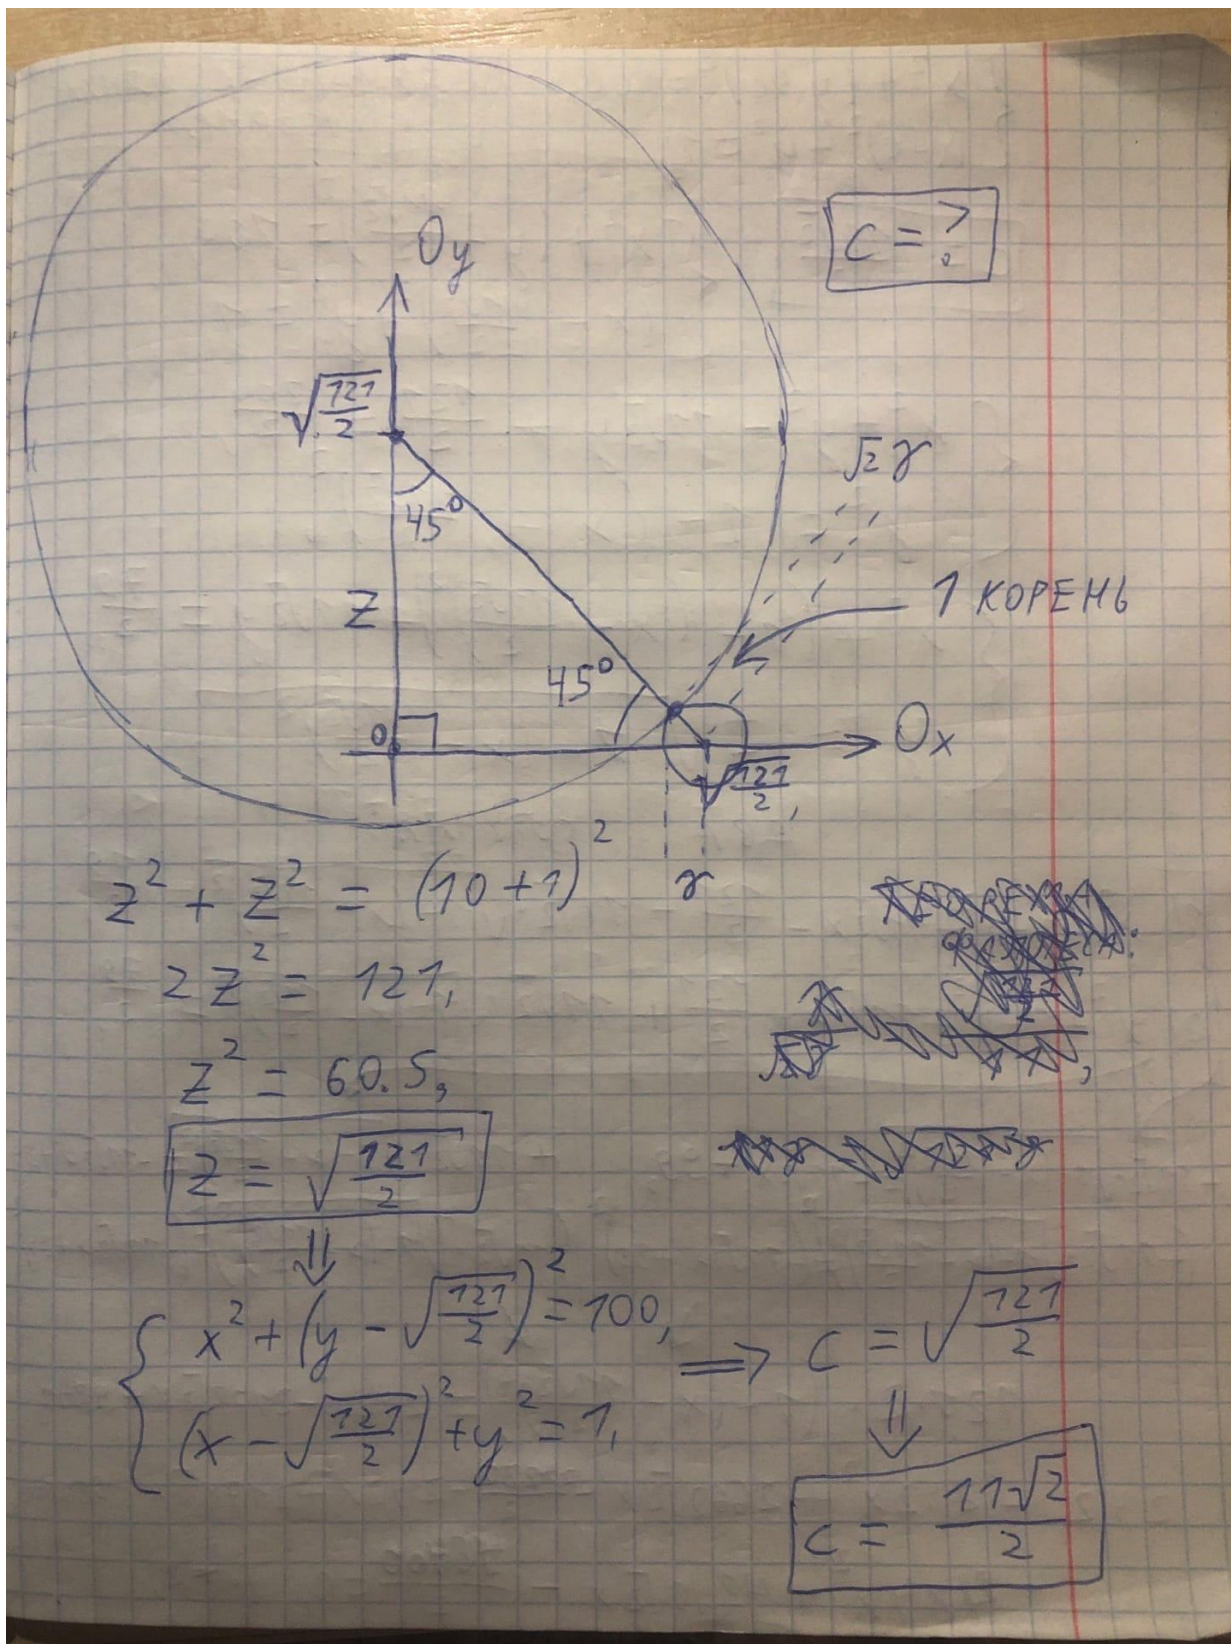 Oy
C = ?
√(121/2)
√2 r
45°
1 КОРЕНЬ
Z
45°
0
Ox
√(121/2),
r
Z² + Z² = (10 + 1)²
2Z² = 121,
Z² = 60.5,
Z = √(121/2)
⇓
{ x² + (y - √(121/2))² = 100,
(x - √(121/2))² + y² = 1,
⇒ C = √(121/2)
⇓
C = 11√2/2